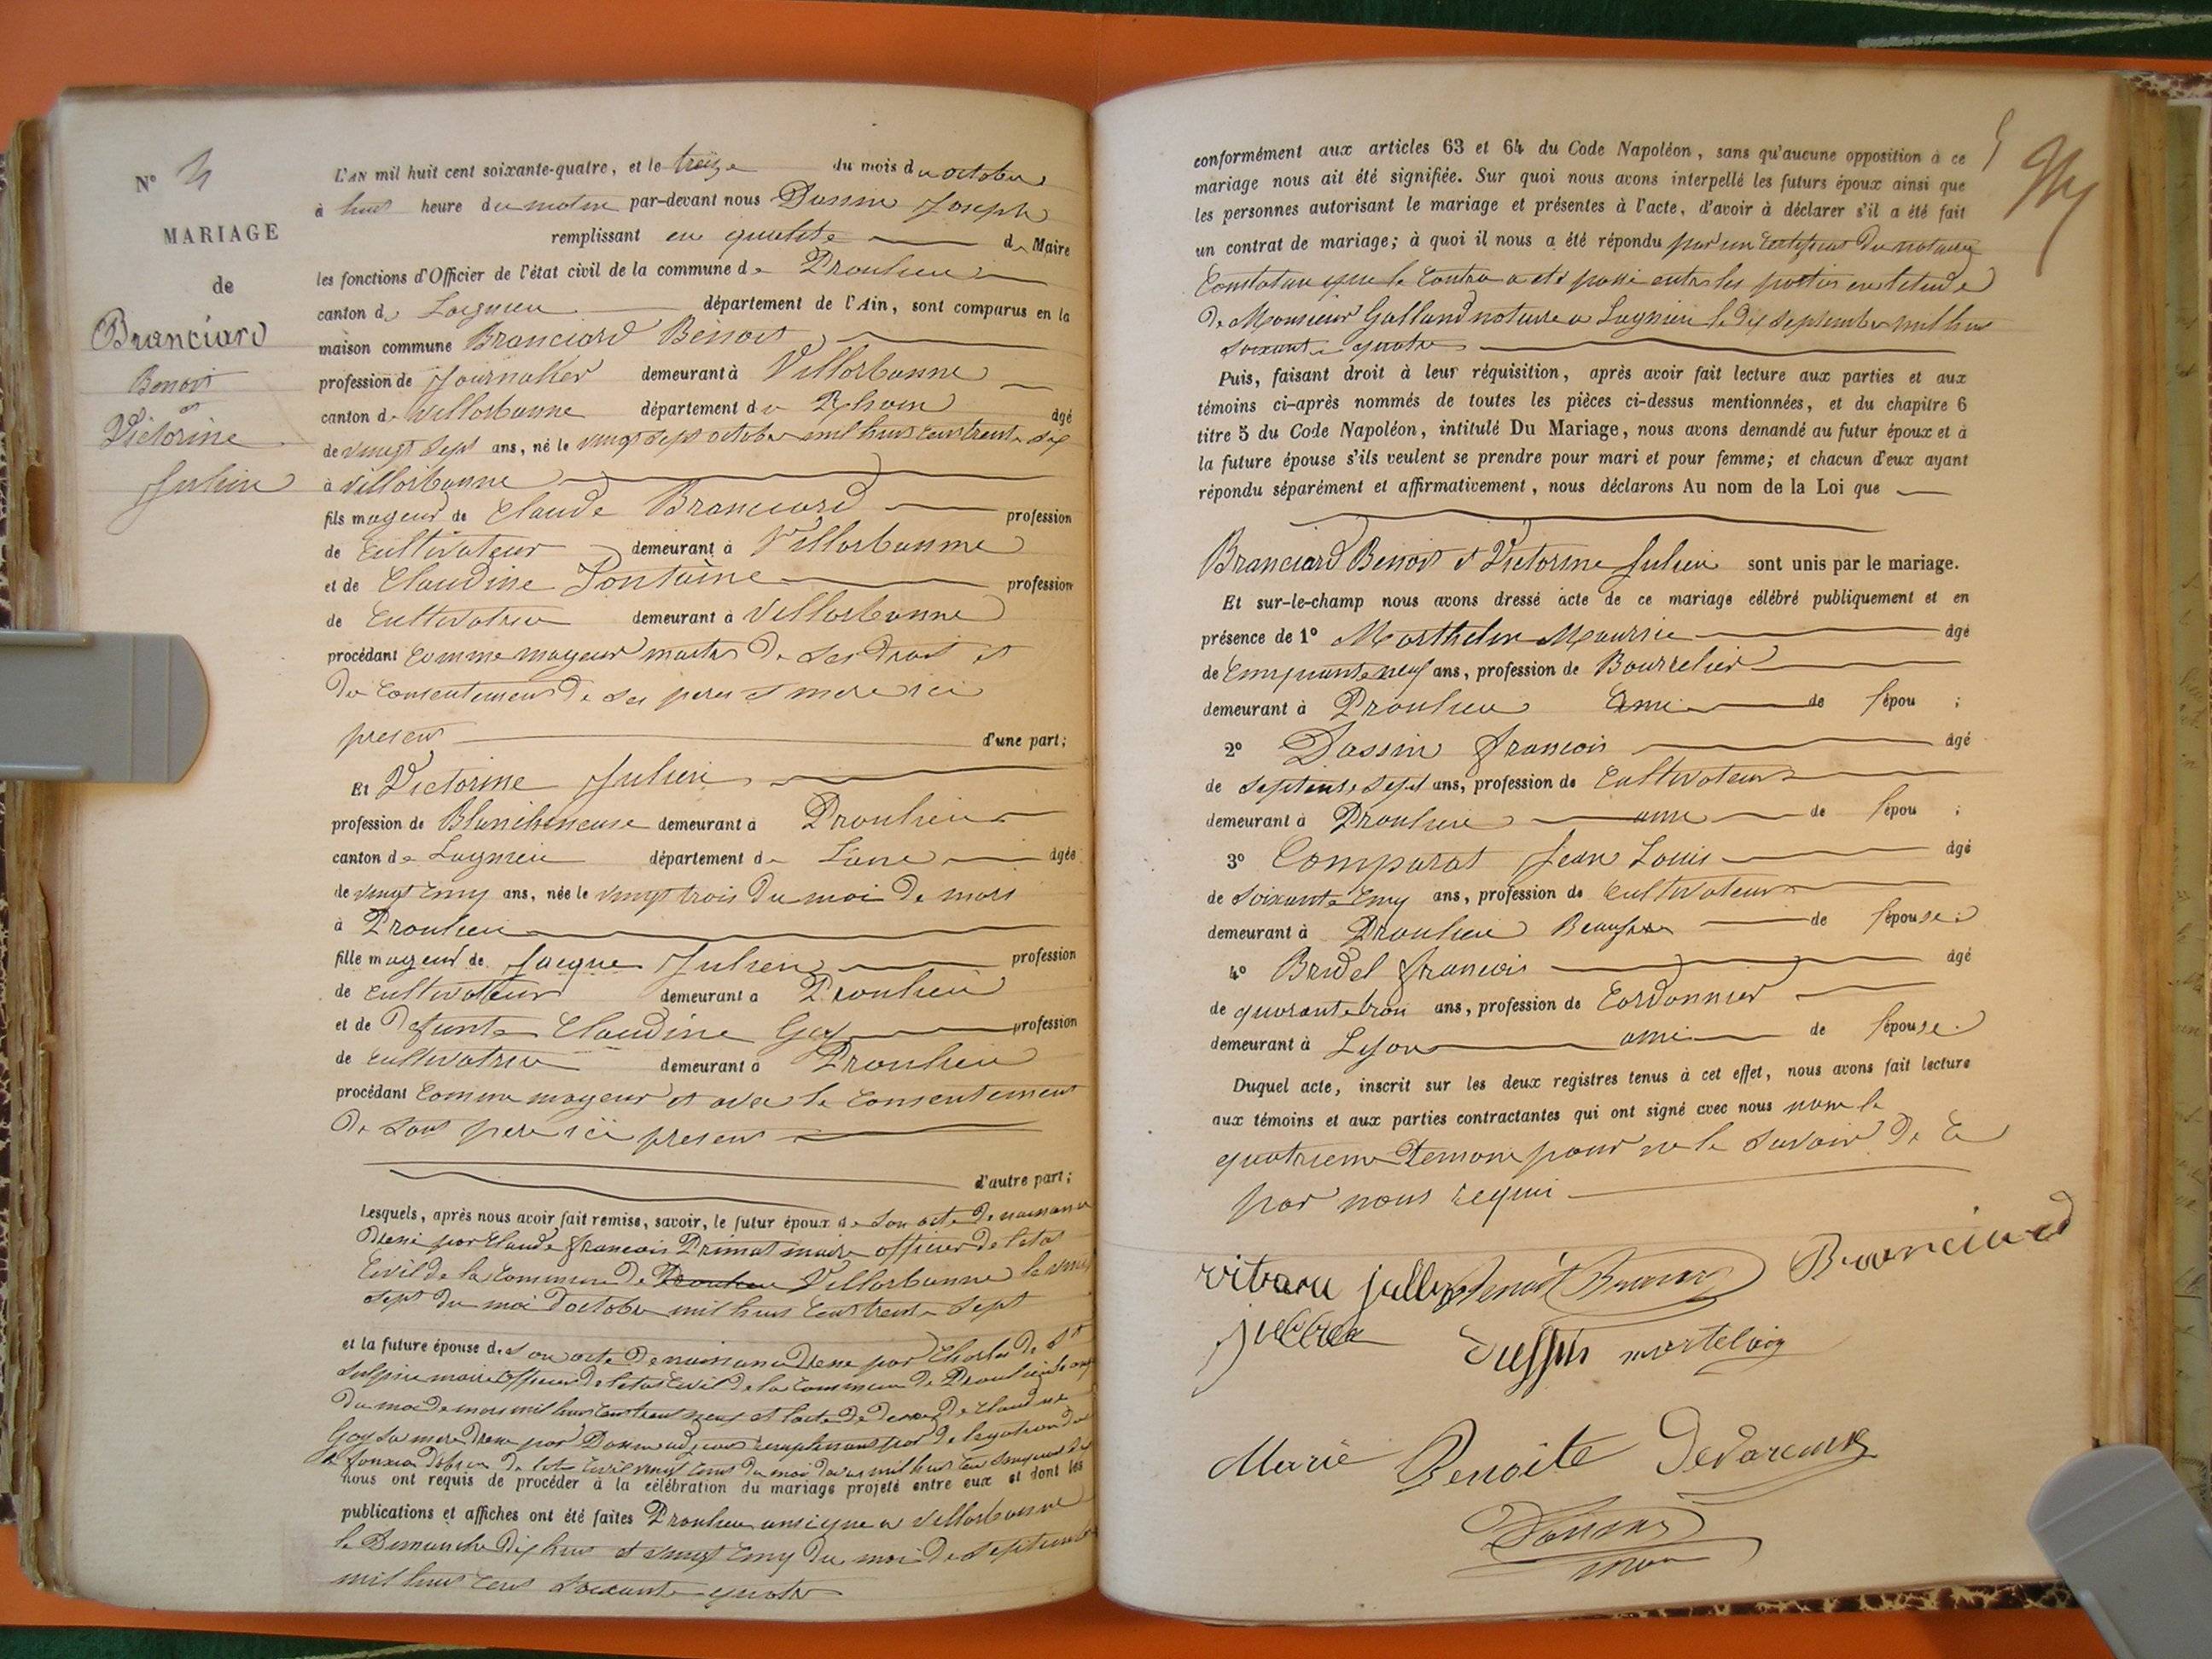 N° 4
MARIAGE
de
Branciard
Benoit
et
Victorine
Julien
L'AN mil huit cent soixante-quatre, et le treize du mois d octobre
à huit heure du matin par-devant nous Joseph
remplissant en qualité de Maire
les fonctions d'Officier de l'état civil de la commune de Proulieu
canton de Lagnieu département de l'Ain, sont comparus en la
maison commune Branciard Benoit
profession de Journalier demeurant à Villorbanne
canton de Villorbanne département du Rhoin âgé
de vingt sept ans, né le vingt sept octobre mil huit cent trente sept
à Villorbanne
fils mageur de Claude Branciard profession
de cultivateur demeurant à Villorbanne
et de Claudine Fontaine profession
de cultivatrice demeurant à Villorbanne
procédant comme mageur maitre de ses droit et
du consentement de ses peres et mere ici
present d'une part;
Et Victorine Julien
profession de Blanchisseuse demeurant à Proulieu
canton de Lagnieu département de Lain âgée
de vingt cinq ans, née le vingt trois du moi de mars
à Proulieu
fille mageur de Jacque Julien profession
de cultivateur demeurant à Proulieu
et de Defunte Claudine Goy profession
de cultivatrice demeurant à Proulieu
procédant comme mageur et avec le consentement
de son pere ici present
d'autre part;
Lesquels, après nous avoir fait remise, savoir, le futur époux de son acte de naissance
par Claude francois Primat maire officier de letat
civil de la commune de Proulieu Villorbanne le vingt
sept du moi doctobre mil huit cent trente sept
et la future épouse de son acte de naissance par Charles de St
Sulpice maire officier de letat civil de la commune de Proulieu
du moi de mars mil huit cent trente neuf et lacte de de Claudine
Goy sa mere par
de civil vingt du moi mil huit
nous ont requis de procéder à la célébration du mariage projeté entre eux et dont les
publications et affiches ont été faites Proulieu a Villorbanne
le Dimanche dix huit et vingt cinq du moi de septembre
mil huit cent soixante quatre
conformément aux articles 63 et 64 du Code Napoléon, sans qu'aucune opposition à ce
mariage nous ait été signifiée. Sur quoi nous avons interpellé les futurs époux ainsi que
les personnes autorisant le mariage et présentes à l'acte, d'avoir à déclarer s'il a été fait
un contrat de mariage; à quoi il nous a été répondu par un certificat du notaire
que le a eté passé entre les parties en
de Monsieur Galland notaire a Lagnieu le dix septembre mil huit
soixante quatre
Puis, faisant droit à leur réquisition, après avoir fait lecture aux parties et aux
témoins ci-après nommés de toutes les pièces ci-dessus mentionnées, et du chapitre 6
titre 5 du Code Napoléon, intitulé Du Mariage, nous avons demandé au futur époux et à
la future épouse s'ils veulent se prendre pour mari et pour femme; et chacun d'eux ayant
répondu séparément et affirmativement, nous déclarons Au nom de la Loi que
Branciard Benoit et Victorine Julien sont unis par le mariage.
Et sur-le-champ nous avons dressé acte de ce mariage célébré publiquement et en
présence de 1° Marthelin âgé
de cinquante neuf ans, profession de Bourrelier
demeurant à Proulieu ami de l'épou ;
2° francois âgé
de septente sept ans, profession de cultivateur
demeurant à Proulieu ami de l'épou ;
3° Comparat Jean Louis âgé
de soixante cinq ans, profession de cultivateur
demeurant à Proulieu de l'épouse ;
4° Bridel francois âgé
de quarante troi ans, profession de Cordonnier
demeurant à Lyon ami de l'épouse.
Duquel acte, inscrit sur les deux registres tenus à cet effet, nous avons fait lecture
aux témoins et aux parties contractantes qui ont signé avec nous non le
quatrieme temoin pour ne le savoir de ce
par nous requi
Benoit Branciard
Marie Benoite